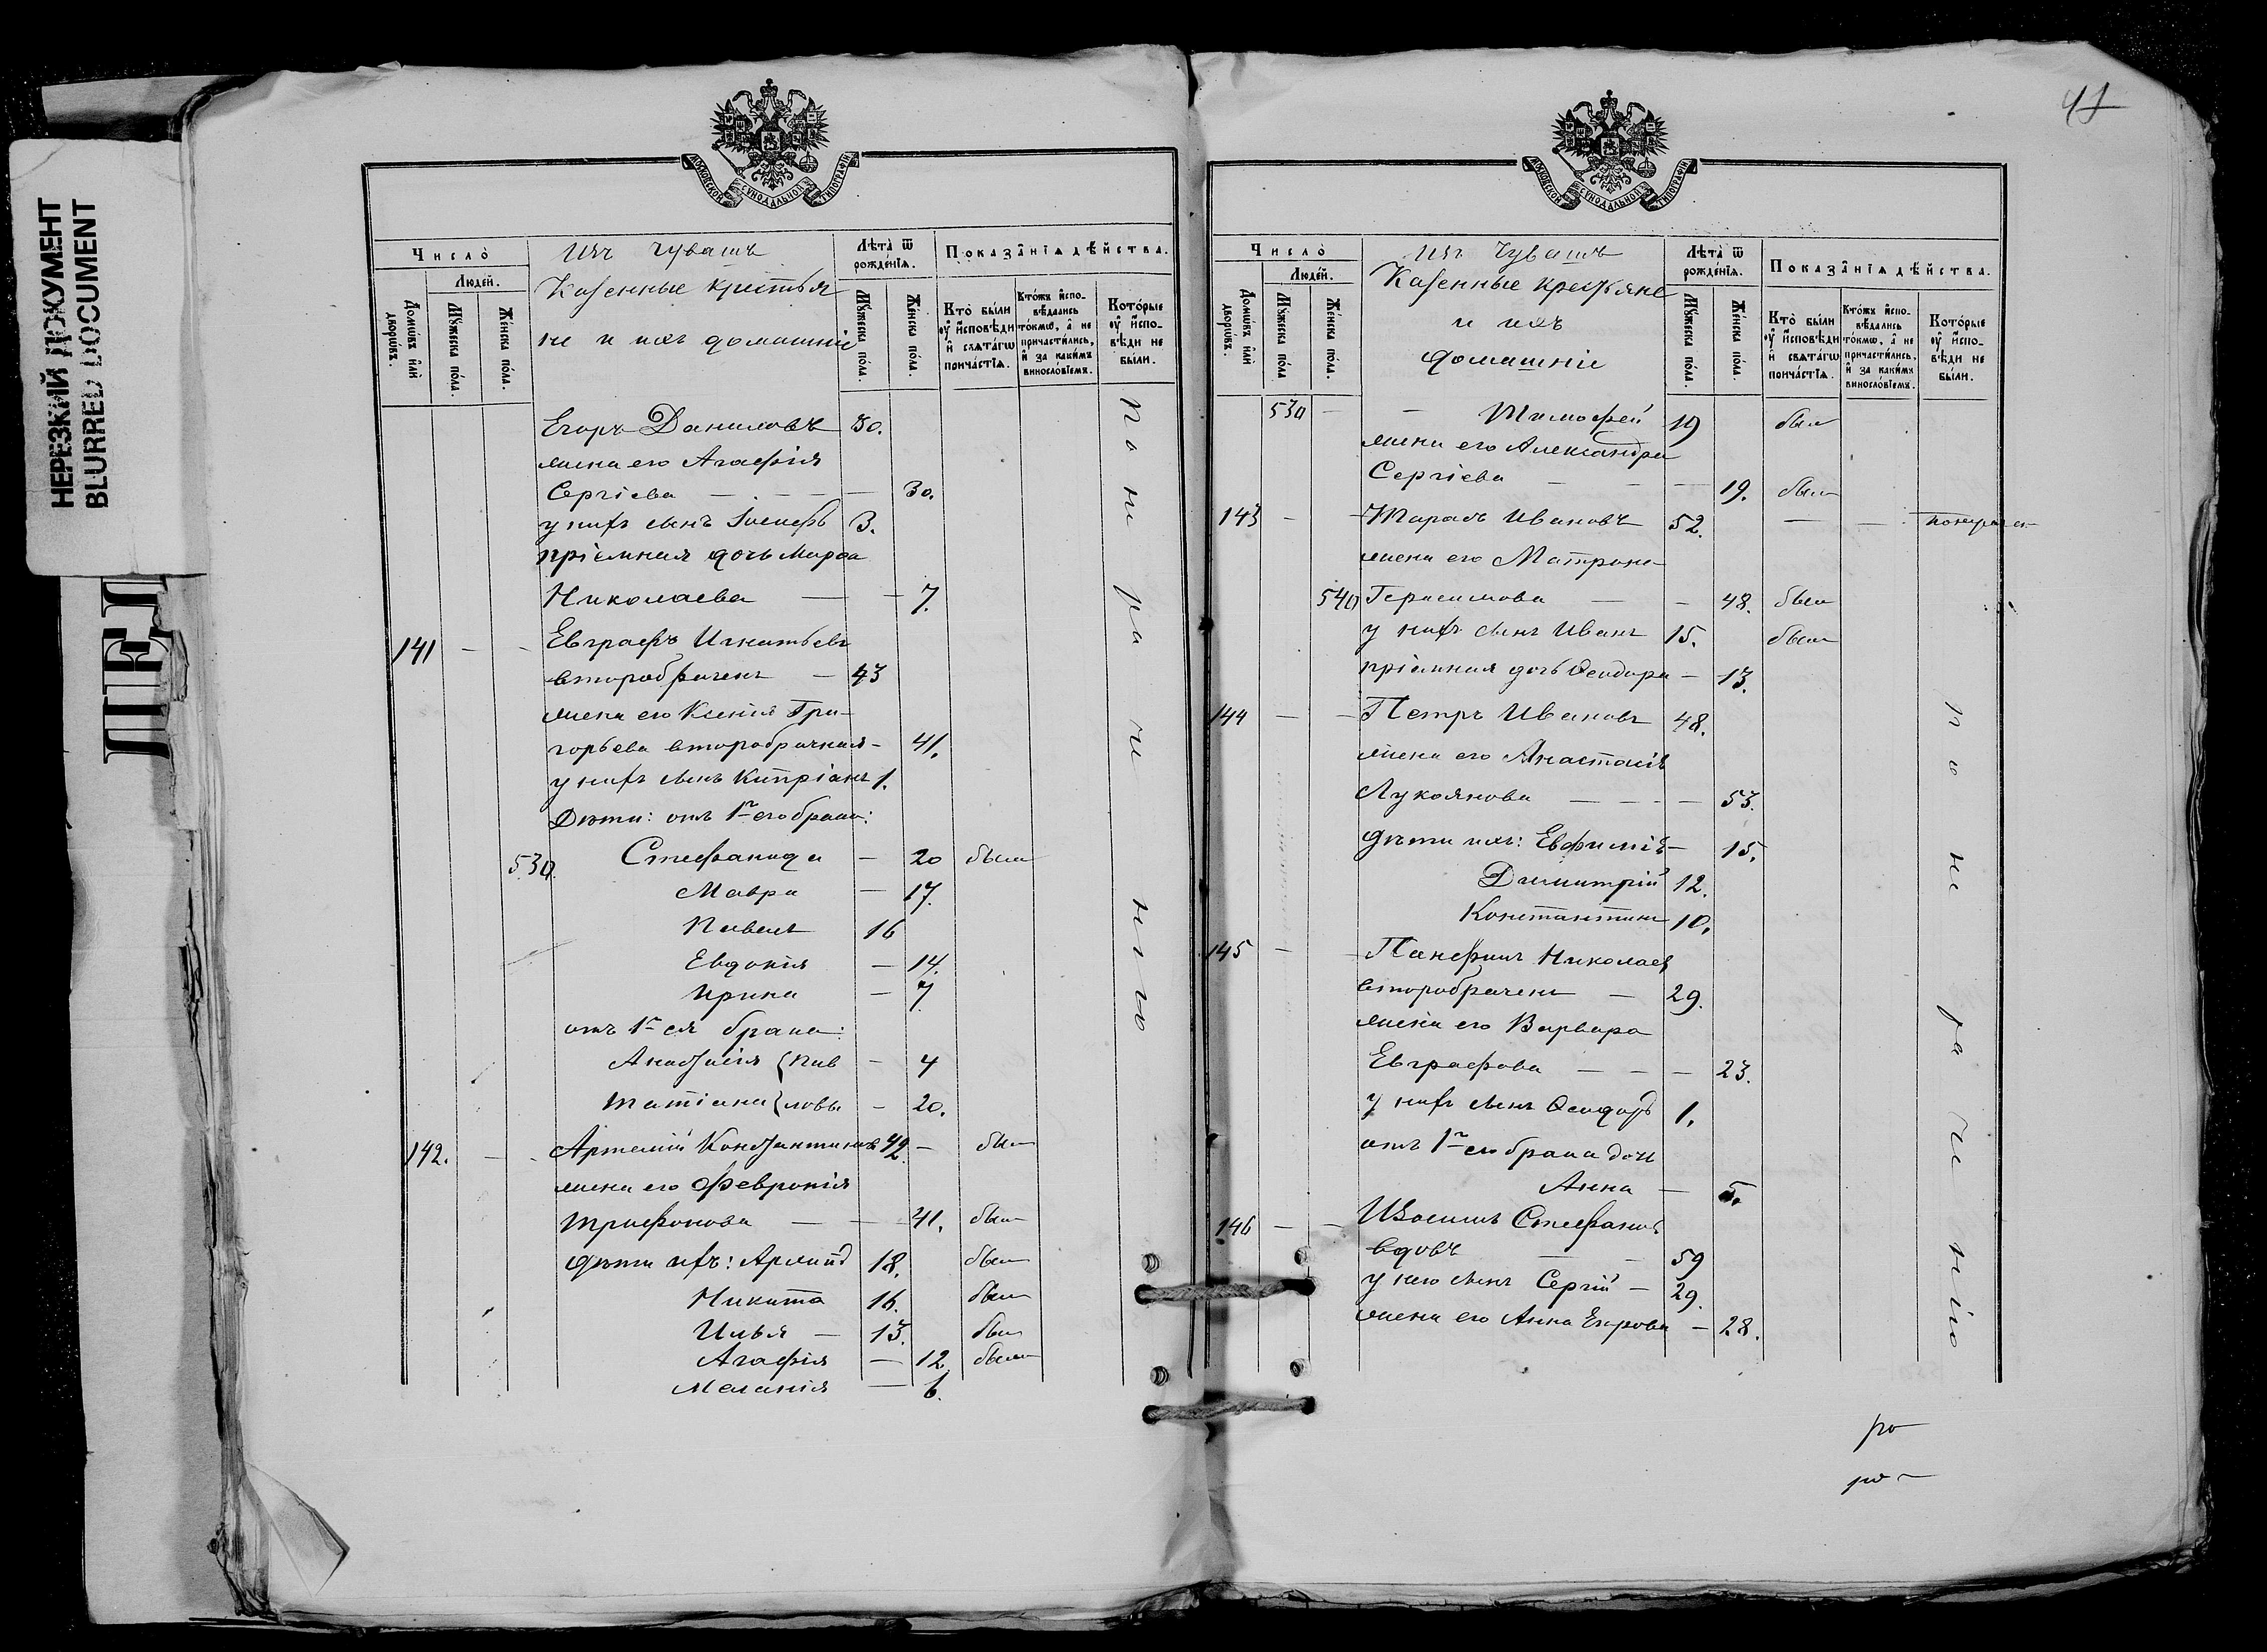 НЕРЕЗКИЙ ДОКУМЕНТ
BLURRED DOCUMENT
МОСКОВСКОЙ СУНОДАЛЬНОЙ ТИПОГРАФІИ
Число̀
Людей.
Домѡвъ и҆лѝ дворѡвъ.
Мꙋжеска по́ла.
Же́нска по́ла.
Изъ чувашъ
Казенные крестья
не и ихъ домашніе
Лѣта̀ ѿ рожде́нїѧ.
Мꙋжеска по́ла.
Же́нска по́ла.
Показа̑нїѧ дѣ́йства.
Кто̀ бы́ли ᲂу҆ и҆сповѣди и҆ свѧта́гѡ прича́стїѧ.
Кто́жъ и҆спо-вѣдались то́кмѡ, а҆ не причасти́лись, и҆ за каки́мъ винослѡ́вїемъ.
Кото́рые ᲂу҆ и҆спо-вѣди не бы́ли.
Егоръ Даниловъ 30.
жена его Агафія
Сергіева — 30.
у нихъ сынъ Іосифъ 3.
пріемная дочь Марѳа
Николаева — 7.
141 Евграфъ Игнатьевъ
второбрачен — 43
жена его Ксенія Гри-
горьева второбрачная - 41.
у нихъ сынъ Кипріанъ 1.
Дѣти: отъ 1го его брака:
530. Стефанида — 20 была
Мавра — 17.
Павелъ 16
Евдокія — 14.
Ирина — 7.
отъ 1го ея брака:
Анастасія { Пав — 4
Татіана } ловы — 20.
142. Артемій Константиновъ 42. — был
жена его Февронія
Трифонова — 41. был
дѣти ихъ: 18. был
Никита 16. был
Илья — 13. был
Агафія — 12 была
Меланія — 6.
по нераченію
41
МОСКОВСКОЙ СУНОДАЛЬНОЙ ТИПОГРАФІИ
Число̀
Людей.
Домѡвъ и҆лѝ дворѡвъ.
Мꙋжеска по́ла
Же́нска по́ла.
Изъ Чувашъ
Казенные крестьяне
и ихъ
домашніе
Лѣта̀ ѿ рожде́нїѧ.
Мꙋжеска по́ла.
Же́нска по́ла.
Показа̑нїѧ дѣ́йства.
Кто̀ бы́ли ᲂу҆ и҆сповѣди и҆ свѧта́гѡ прича́стїѧ.
Кто́жъ и҆спо-вѣдались то́кмѡ, а҆ не причасти́лись, и҆ за каки́мъ винослѡ́вїемъ.
Кото́рые ᲂу҆ и҆спо-вѣди не бы́ли.
530 — Тимофей 19 был
жена его Александра
Сергіева — 19. был
143 — Тарасъ Ивановъ 52. —
жена его Матрона
540 Герасимова — 48. была
у нихъ сынъ Иванъ 15. был
пріемная дочь Ѳеодора — 13.
144 — Петръ Ивановъ 48.
жена его Анастасія
Лукоянова — 53.
дѣти ихъ: Евфимія — 15.
Димитрій 12.
Константинъ 10.
145 — Панфилъ Николаев
второбрачен — 29.
жена его Варвара
Евграфова — 23.
у нихъ сынъ Ѳеодоръ 1.
отъ 1го его брака дочь
Анна — 5.
146 — Изосимъ Стефановъ
вдовъ — 59
у него сынъ Сергій — 29.
жена его Анна Егорова — 28.
по нераченію